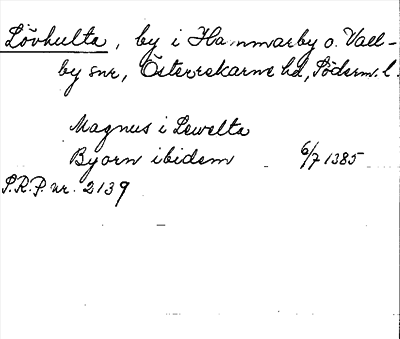 Lövhulta, by i Hammarby o. Vall-
by snr, Österrekarne hd, Söderm. l.
Magnus i Lewelta
Byorn ibidem 6/7 1385
S.R.P. nr. 2139